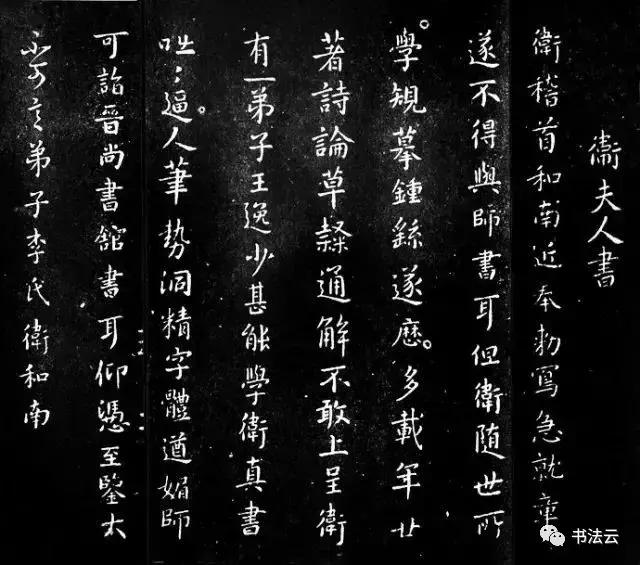 衛夫人書
衛稽首和南近奉勅寫急就章
遂不得與師書耳但衛隨世所
學規摹鍾繇遂歷多載年廿
著詩論草隸通解不敢上呈衛
有一弟子王逸少甚能學衛真書
咄〻逼人筆勢洞精字體遒媚師
可詣晉尚書舘書耳仰憑至鑒大
不可言弟子李氏衛和南
书法云